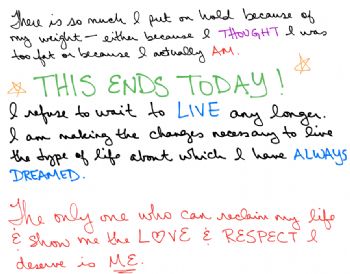 There is so much I put on hold because of
my weight — either because I THOUGHT I was
too fat or because I actually AM.
THIS ENDS TODAY!
I refuse to wait to LIVE any longer.
I am making the changes necessary to live
the type of life about which I have ALWAYS
DREAMED.
The only one who can reclaim my life
& show me the LOVE & RESPECT I
deserve is ME.